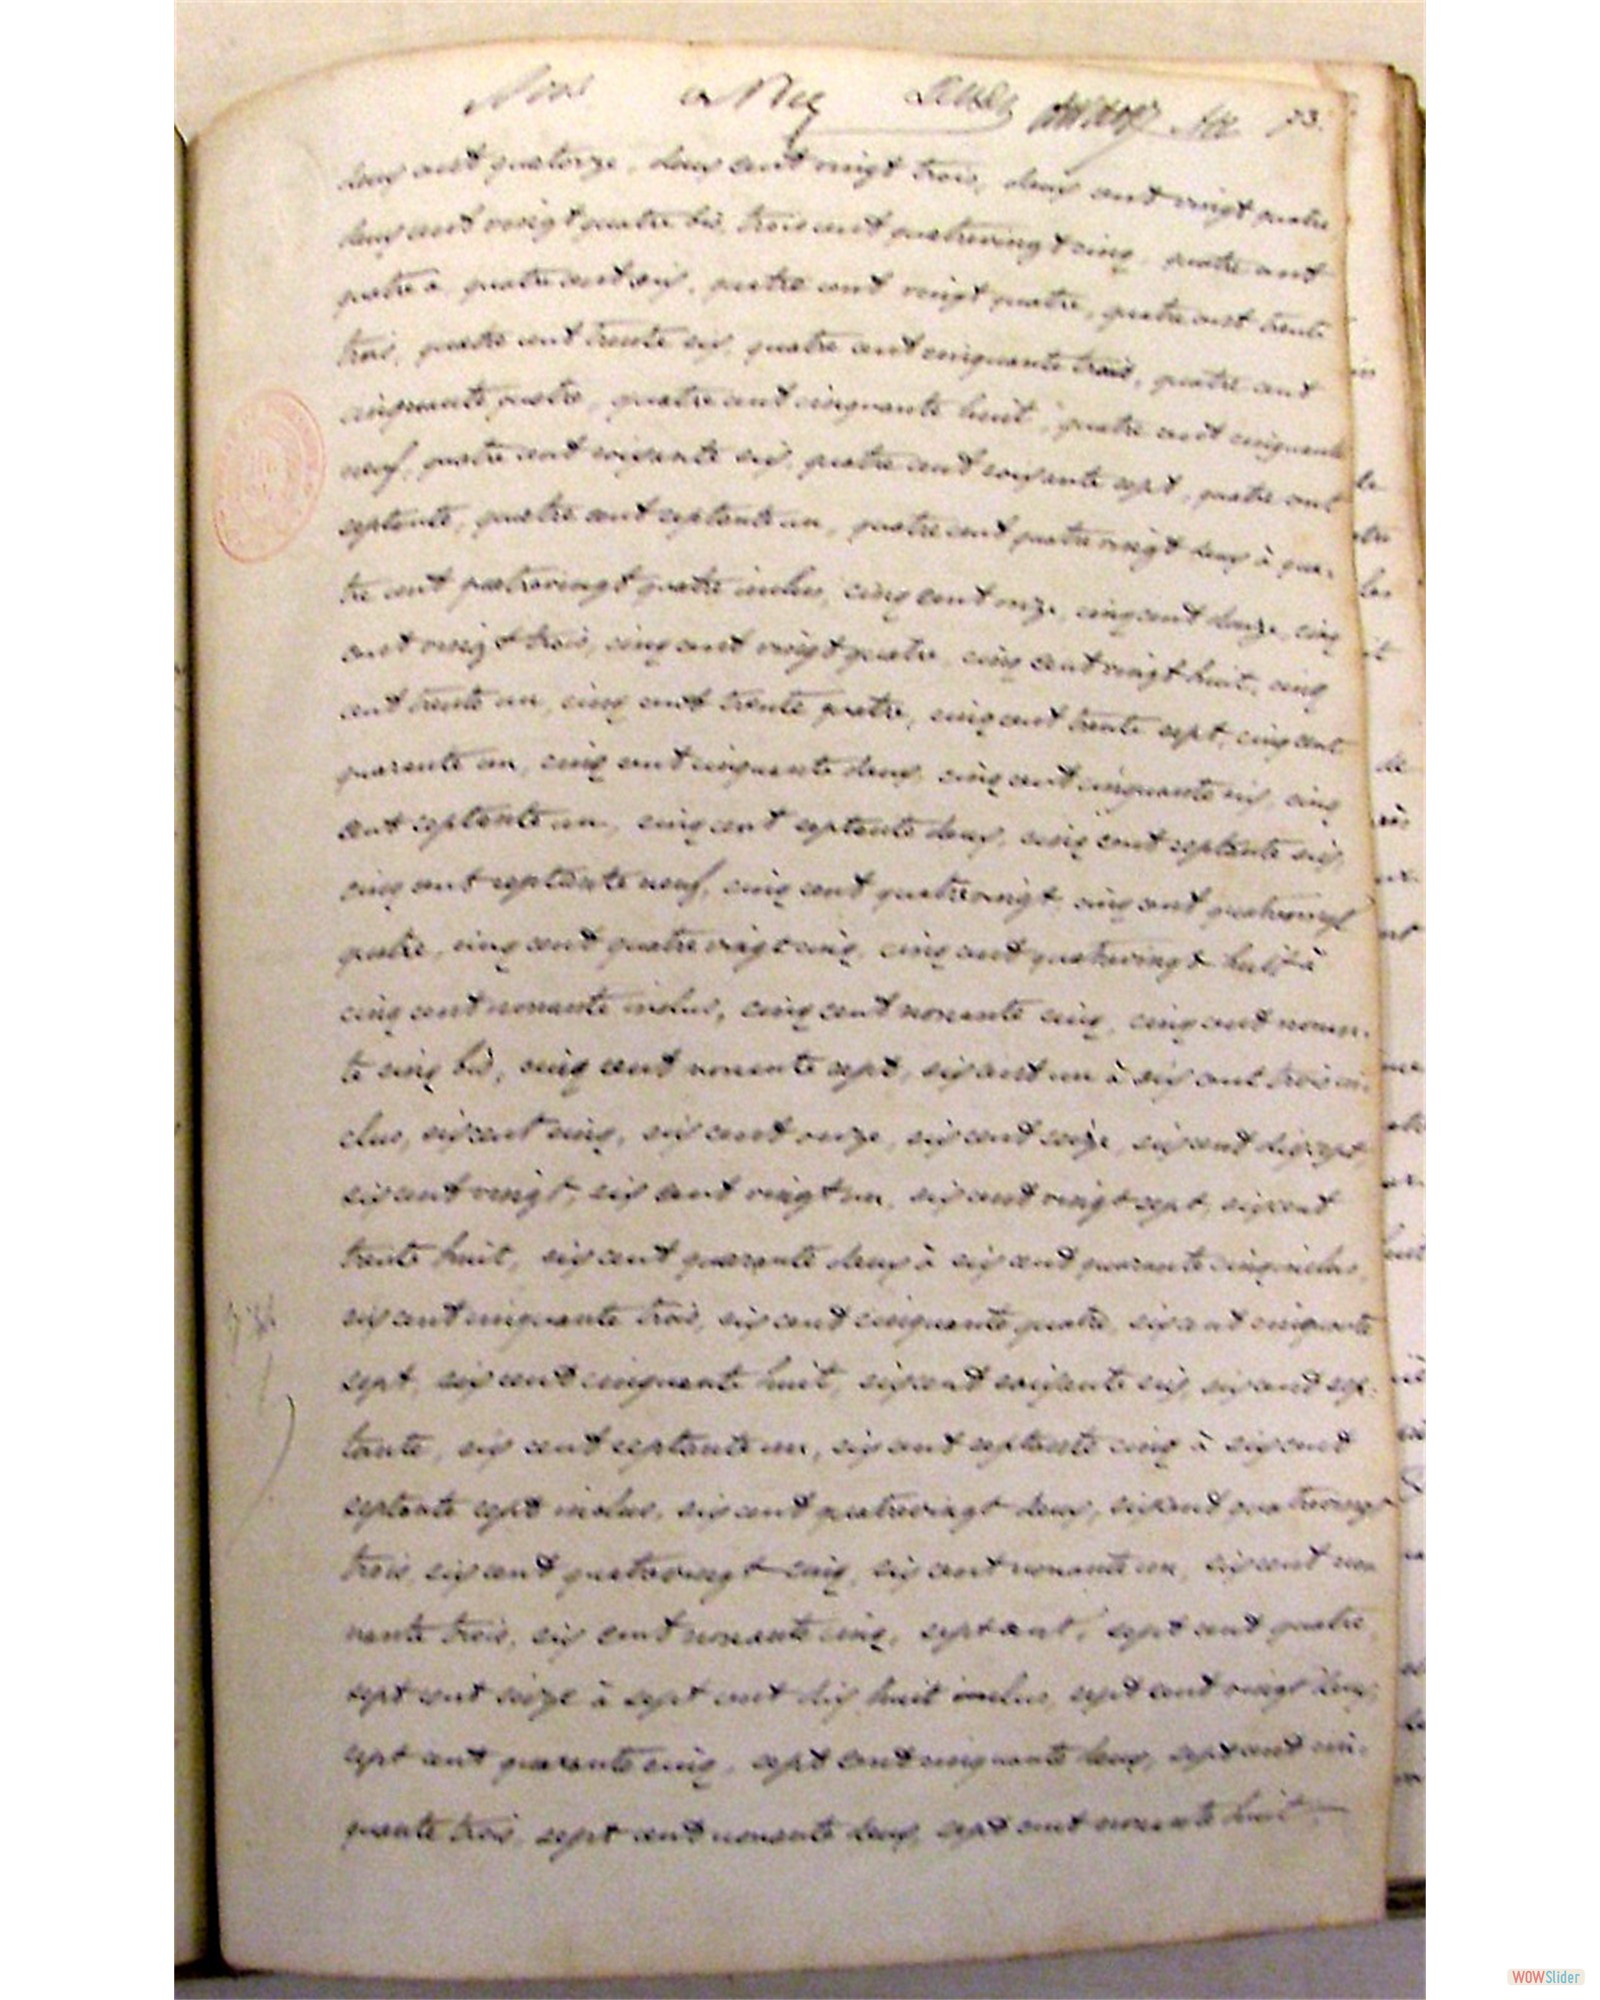 73.
deux cent quatorze, deux cent vingt trois, deux cent vingt quatre
deux cent vingt quatre bis, trois cent quatrevingt cinq, quatre cent
quatre a, quatre cent six, quatre cent vingt quatre, quatre cent trente
trois, quatre cent trente six, quatre cent cinquante trois, quatre cent
cinquante quatre, quatre cent cinquante huit, quatre cent cinquante
neuf, quatre cent soixante six, quatre cent soixante sept, quatre cent
septante, quatre cent septante un, quatre cent quatre vingt deux à qua-
tre cent quatrevingt quatre inclus, cinq cent onze, cinq cent douze, cinq
cent vingt trois, cinq cent vingt quatre, cinq cent vingt huit, cinq
cent trente un, cinq cent trente quatre, cinq cent trente sept, cinq cent
quarante un, cinq cent cinquante deux, cinq cent cinquante six, cinq
cent septante un, cinq cent septante deux, cinq cent septante six,
cinq cent septante neuf, cinq cent quatrevingt, cinq cent quatrevingt
quatre, cinq cent quatre vingt cinq, cinq cent quatrevingt huit à
cinq cent nonante inclus, cinq cent nonante cinq, cinq cent nonan-
te cinq bis, cinq cent nonante sept, six cent un à six cent trois in-
clus, six cent cinq, six cent onze, six cent seize, six cent dix sept
six cent vingt, six cent vingt un, six cent vingt sept, six cent
trente huit, six cent quarante deux à six cent quarante cinq inclus,
six cent cinquante trois, six cent cinquante quatre, six cent cinquante
sept, six cent cinquante huit, six cent soixante six, six cent sep-
tante, six cent septante un, six cent septante cinq à six cent
septante sept inclus, six cent quatrevingt deux, six cent quatrevingt
trois, six cent quatrevingt cinq, six cent nonante un, six cent no
nante trois, six cent nonante cinq, sept cent, sept cent quatre,
sept cent seize à sept cent dix huit inclus, sept cent vingt deux,
sept cent quarante cinq, sept cent cinquante deux, sept cent cin-
quante trois, sept cent nonante deux, sept cent nonante huit
WOWSlider